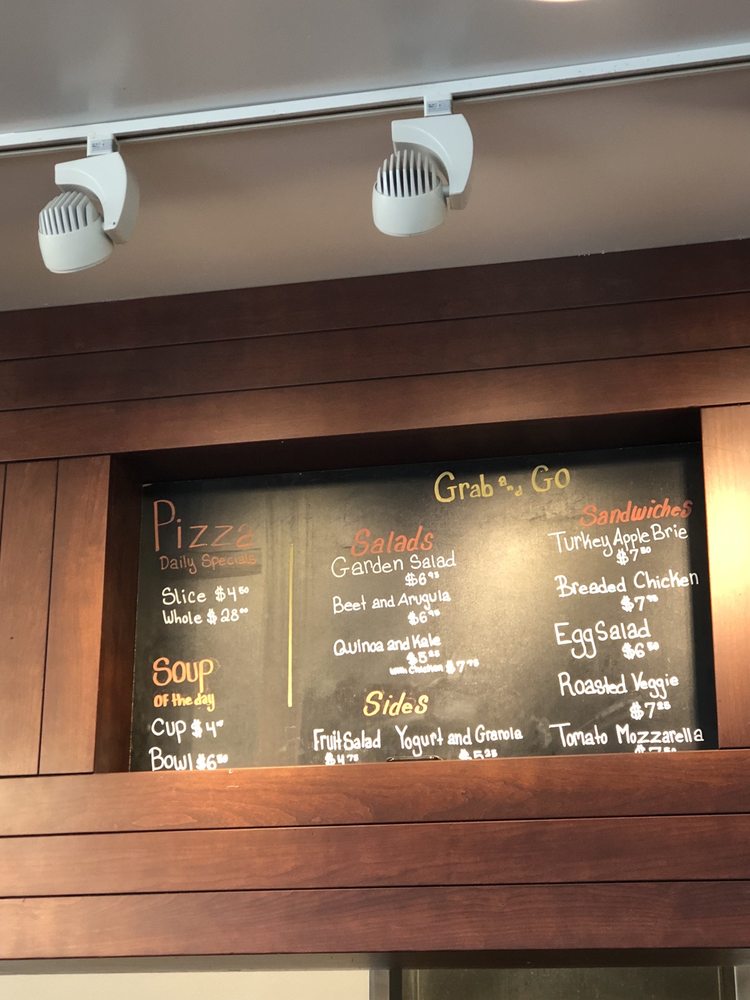 Grab and Go
Pizza
Daily Specials
Slice $4.50
Whole $28.00
Soup
Of the day
Cup $4
Bowl $6.50
Salads
Garden Salad
$6.95
Beet and Arugula
$6.95
Quinoa and Kale
$5.25
With Chicken $7.75
Sides
Fruit Salad Yogurt and Granola
$4.75 $5.25
Sandwiches
Turkey Apple Brie
$7.50
Breaded Chicken
$7
Egg Salad
$6.50
Roasted Veggie
$7.25
Tomato Mozzarella